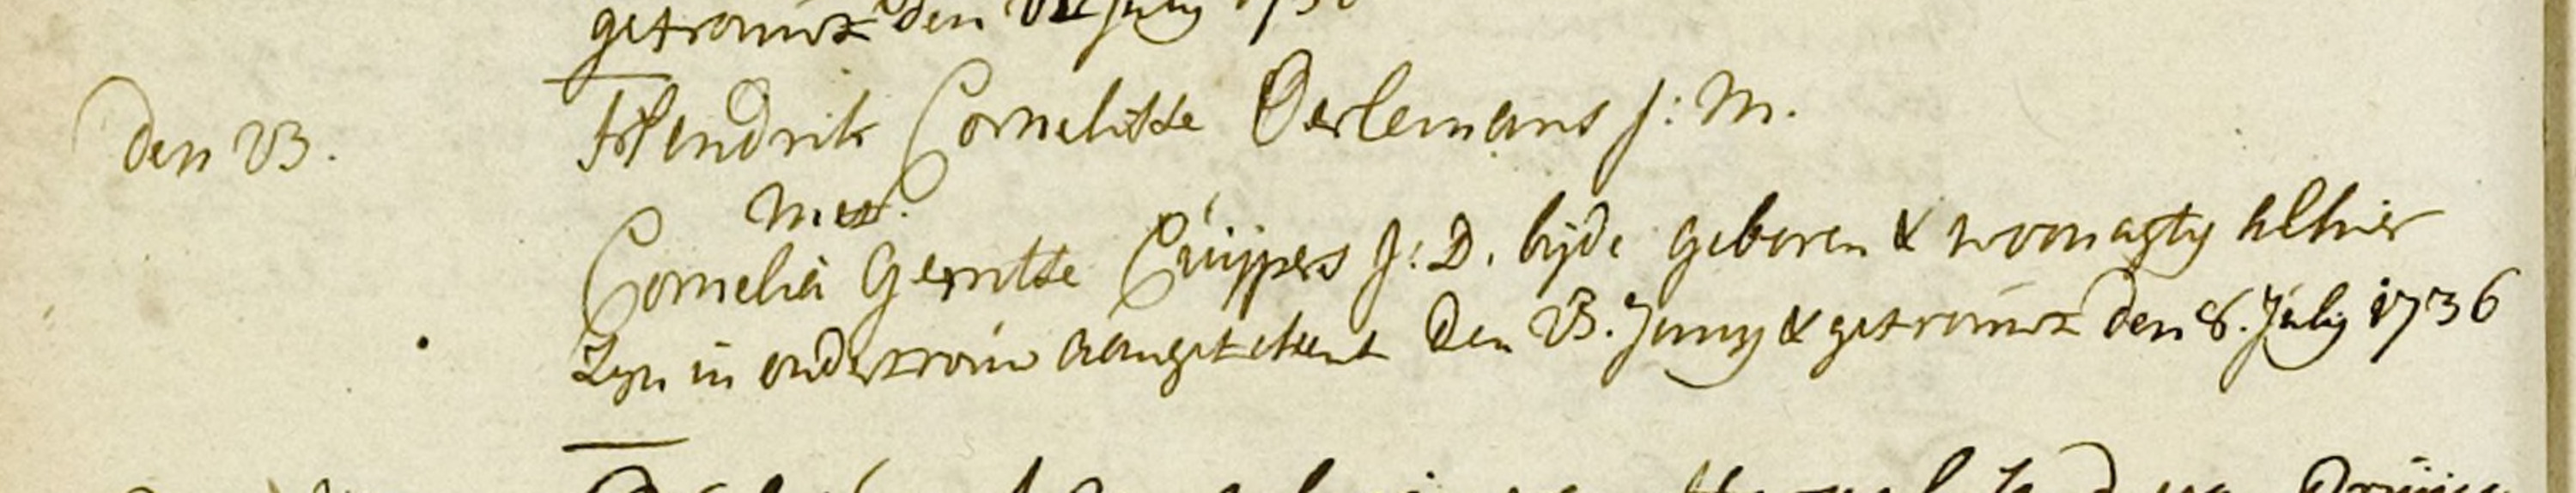 getrouwt den July
Den 23. Hendrik Cornelisse Oerlemans J: M.
met
Cornelia Gerritse Cuijpers J: D. bijde geboren & woonagtg alhier
Zyn in ondertrouw aangetekent Den 23. Juny & getrouwt den 8. July 1736